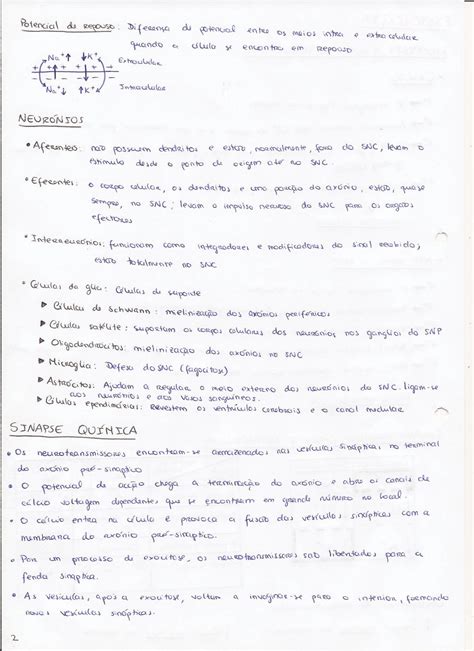 Potencial de repouso: Diferença de potencial entre os meios intra e extracelular
quando a célula se encontra em repouso
Na⁺ K⁺ Extracelular
+ + + + + +
- - - -
Na⁺ K⁺ Intracelular
NEURÓNIOS
• Aferentes: não possuem dendritos e estão, normalmente, fora do SNC, levam o
estímulo desde o ponto de origem até ao SNC.
• Eferentes: o corpo celular, os dendritos e uma porção do axónio, estão, quase
sempre, no SNC; levam o impulso nervoso do SNC para os orgãos
efectores
• Interneurónios: funcionam como integradores e modificadores do sinal recebido,
estão totalmente no SNC
• Células da glia: Células de suporte
▶ Células de Schwann: mielinização dos axónios periféricos
▶ Células satélite: suportam os corpos celulares dos neurónios nos ganglios do SNP
▶ Oligodendrócitos: mielinização dos axónios no SNC
▶ Microglia: Defesa do SNC (fagócitose)
▶ Astrócitos: Ajudam a regular o meio externo dos neurónios do SNC. ligam-se
aos neurónios e aos vasos sanguíneos.
▶ Células ependimárias: Revestem os ventrículos cerebrais e o canal medular
SINAPSE QUÍMICA
• Os neurotransmissores encontram-se armazenados nas vesículas sinápticas, no terminal
do axónio pré-sináptico
• O potencial de acção chega à terminação do axónio e abre os canais de
cálcio voltagem dependentes, que se encontram em grande número no local.
• O cálcio entra na célula e provoca a fusão das vesículas sinápticas com a
membrana do axónio pré-sináptico.
• Por um processo de exocitose, os neurotransmissores são libertados para a
fenda sináptica.
• As vesículas, após a exocitose, voltam a invaginar-se para o interior, formando
novas vesículas sinápticas.
2